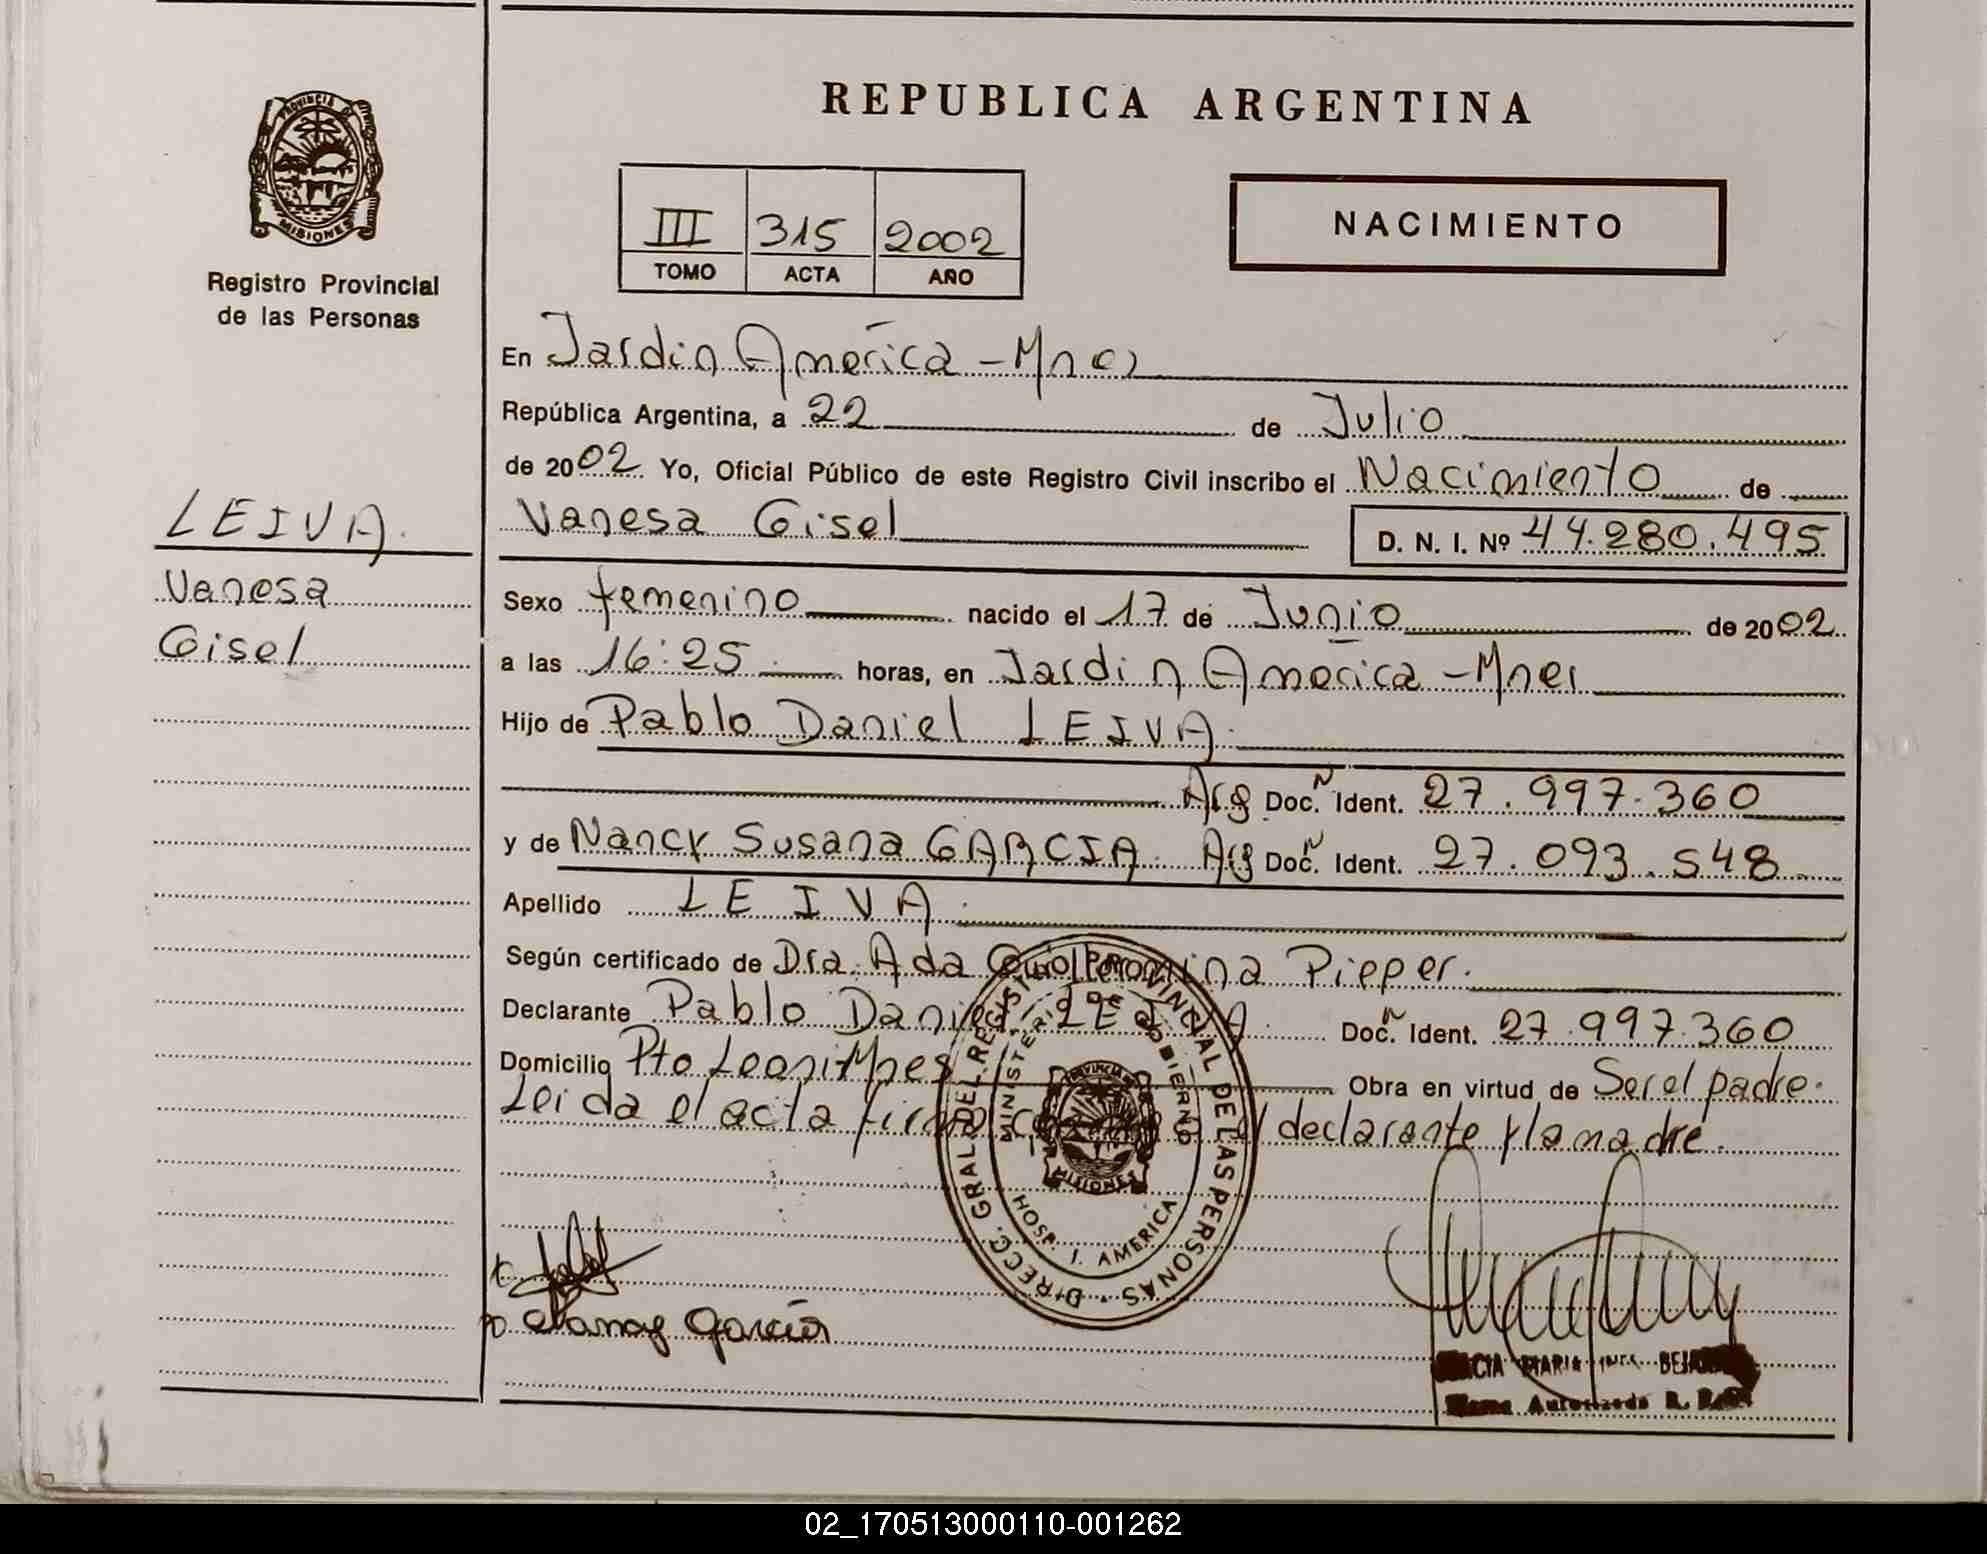 REPUBLICA ARGENTINA
PROVINCIA DE MISIONES
Registro Provincial
de las Personas
III 315 2002
TOMO ACTA AÑO
NACIMIENTO
En Jardin América - Mnes
República Argentina, a 22 de Julio
de 2002 Yo, Oficial Público de este Registro Civil inscribo el Nacimiento de
Vanesa Gisel D. N. I. Nº 44.280.495
LEIVA.
Vanesa
Gisel
Sexo femenino nacido el 17 de Junio de 2002
a las 16:25 horas, en Jardin América - Mnes
Hijo de Pablo Daniel LEIVA.
Arg Doc. N Ident. 27.997.360
y de Nancy Susana GARCIA. Arg Doc. N Ident. 27.093.548
Apellido LEIVA.
Según certificado de Dra. Ada Pieper.
Declarante Pablo Daniel LEIVA. Doc. N Ident. 27.997.360
Domicilio Pto Leoni Mnes Obra en virtud de Ser el padre.
Leida el acta declarante y la madre.
DIRECC. GRAL DEL REGIST. PROVINCIAL DE LAS PERSONAS
MINISTERIO DE GOBIERNO
PROVINCIA MISIONES
HOSP. J. AMERICA
Nancy Garcia
MARIA
Autorizada R.
02_170513000110-001262